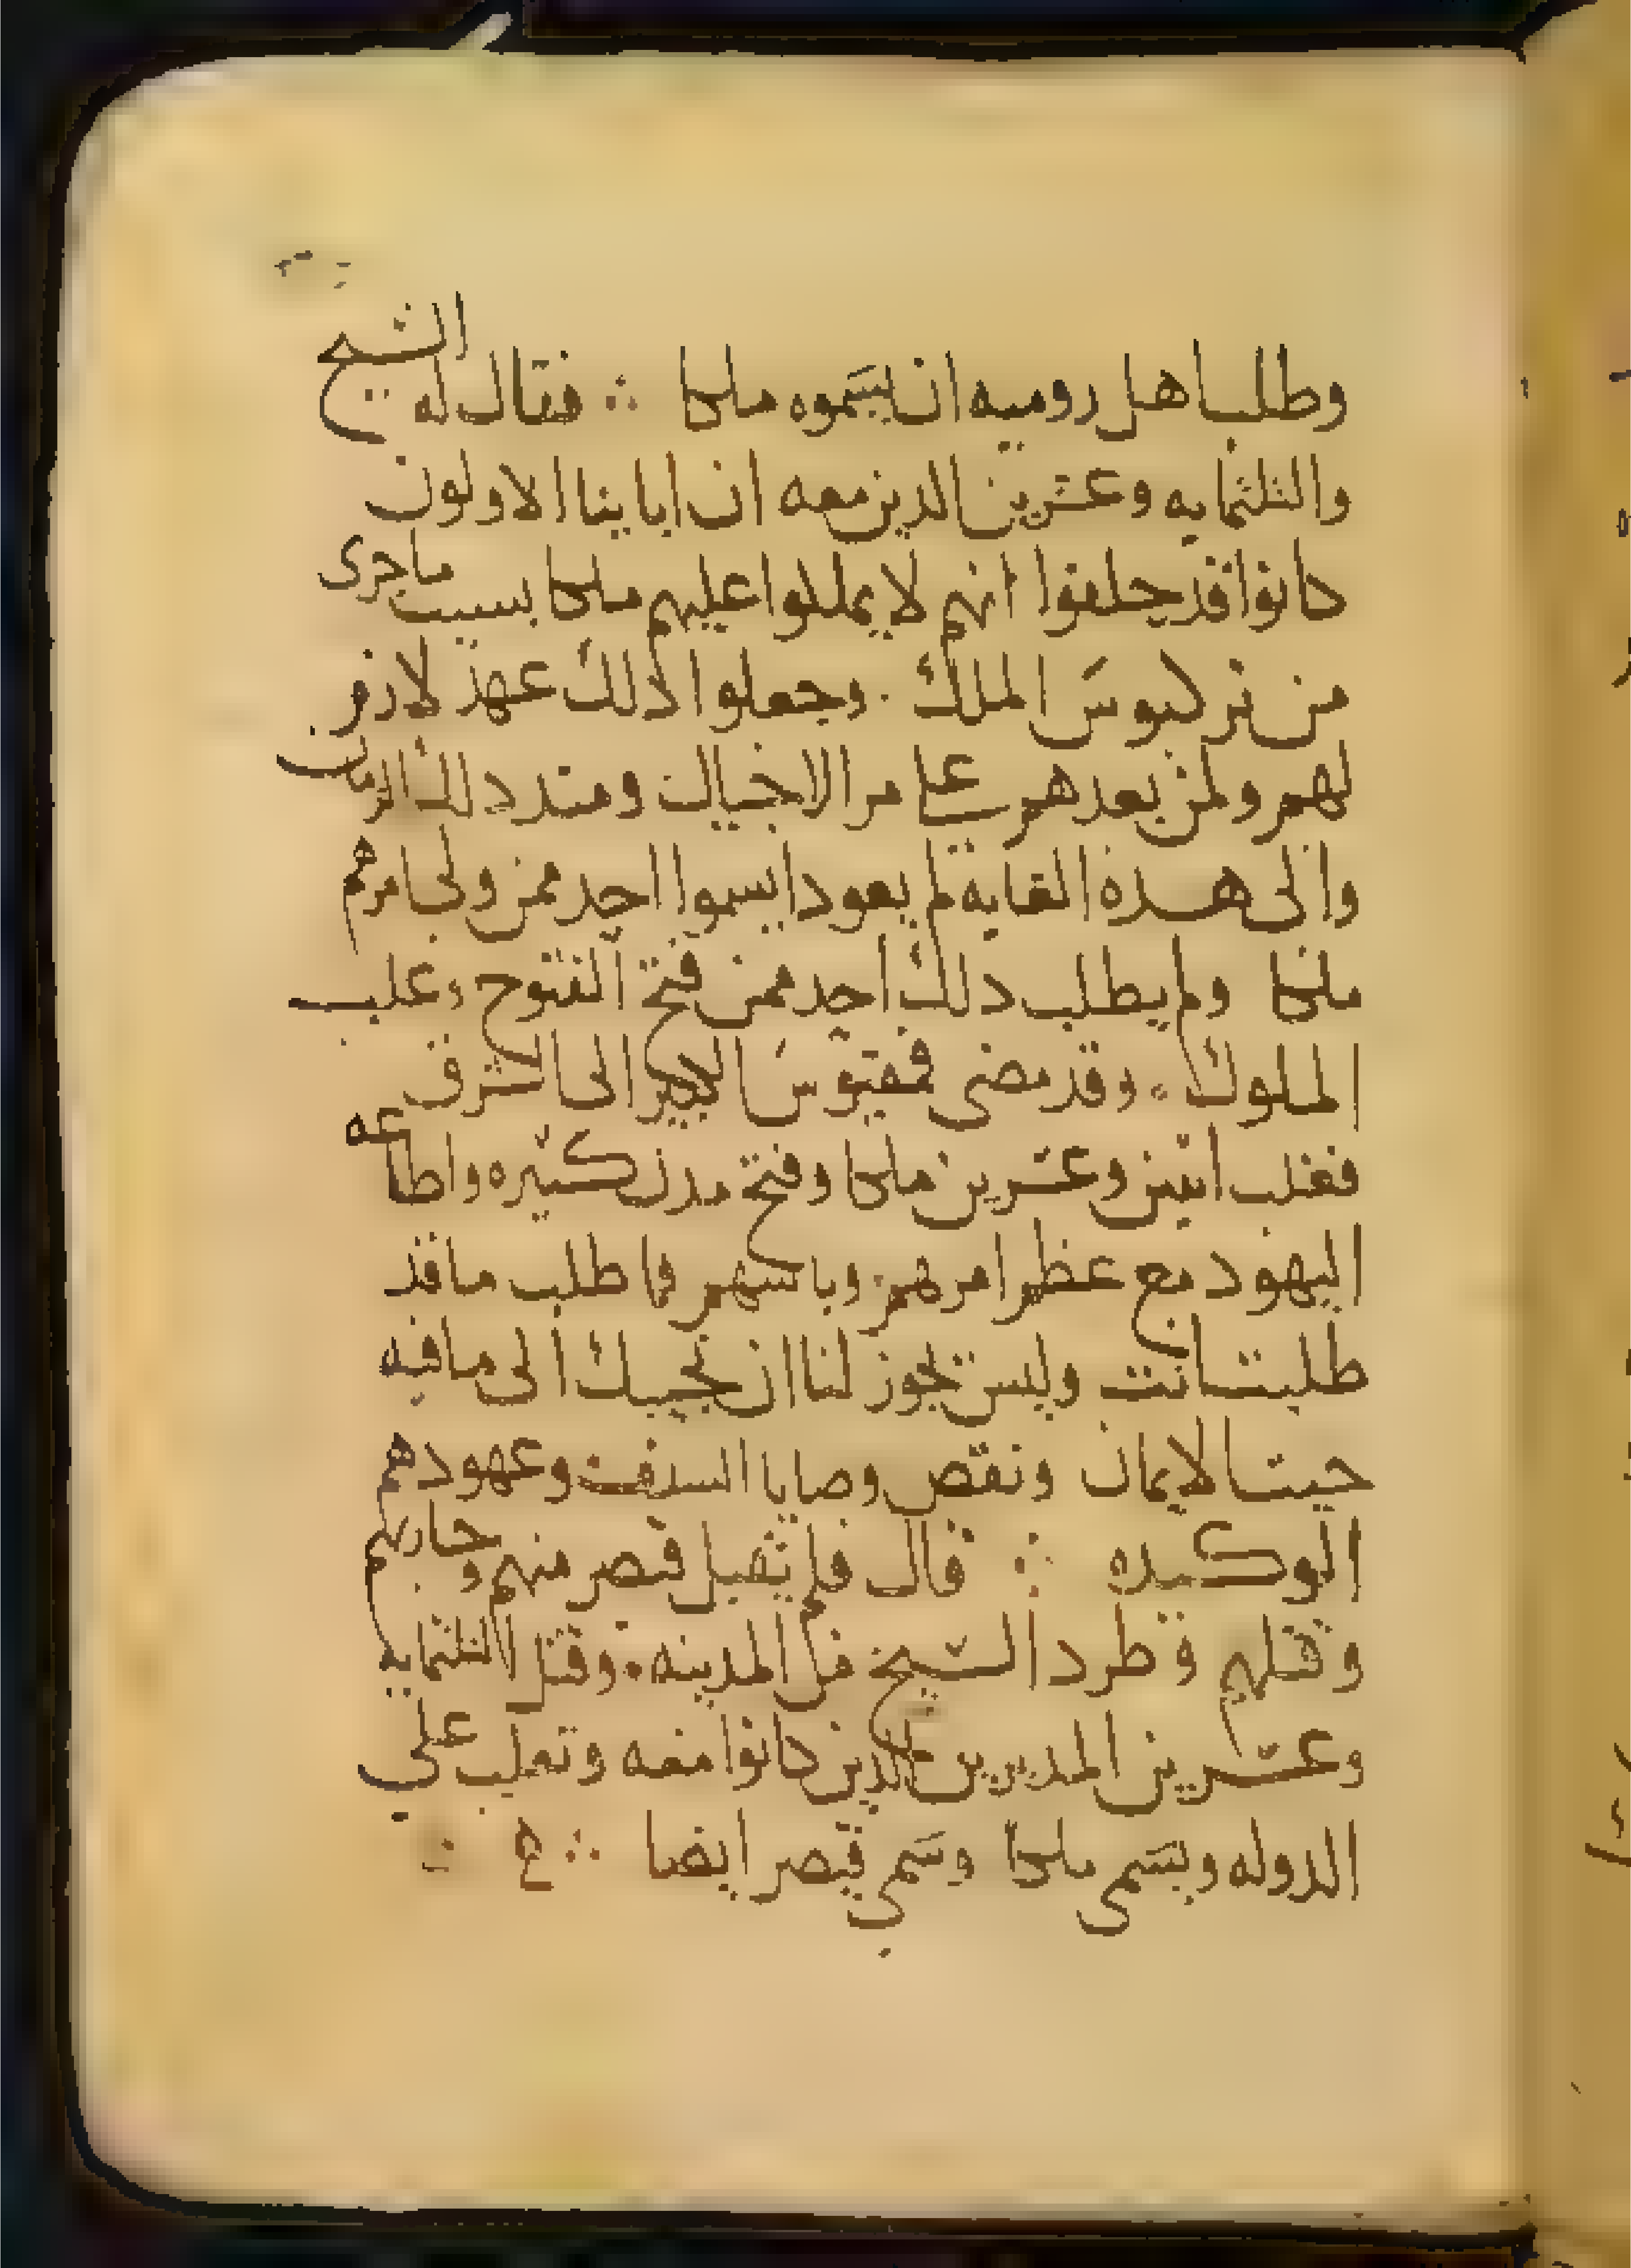 وطلب اهل روميه ان يسموه ملكا ∴ فقال له الشيخ
والثلثمايه وعشرين الدين معه ان اباينا الاولون
كانوا قد حلفوا انهم لا يملكوا عليهم ملكا بسبب ماجرى
من تركيوس الملك ٠ وجعلوا ذلك عهد لازم
لهم ولمن بعدهم على مر الاجيال ومند دلك الزمان
والى هده الغايه لم يعودا يسموا احد ممن ولى امرهم
ملكا ولم يطلب دلك احد ممن فتح الفتوح وغلب
الملوك ٠ وقد مضى فمقيوس الكبير الى الشرق
فغلب اثنين وعشرين ملكا وفتح مدن كثيره واطاعه
اليهود مع عظم امرهم وباسهم فما طلب ما قد
طلبت انت وليس تجوز لنا ان نجيبك الى ما فيه
حيت الايمان ونقص وصايا السلف وعهودهم
الوكيده ∴ قال فلم يقبل قيصر منهم وحاربهم
وقتلهم وطرد الشيخ من المدينه ٠ وقتل الثلثمايه
وعشرين المدبرين الدين كانوا معه وتغلب علي
الدوله ويسمى ملكا وسمي قيصر ايضا ∴